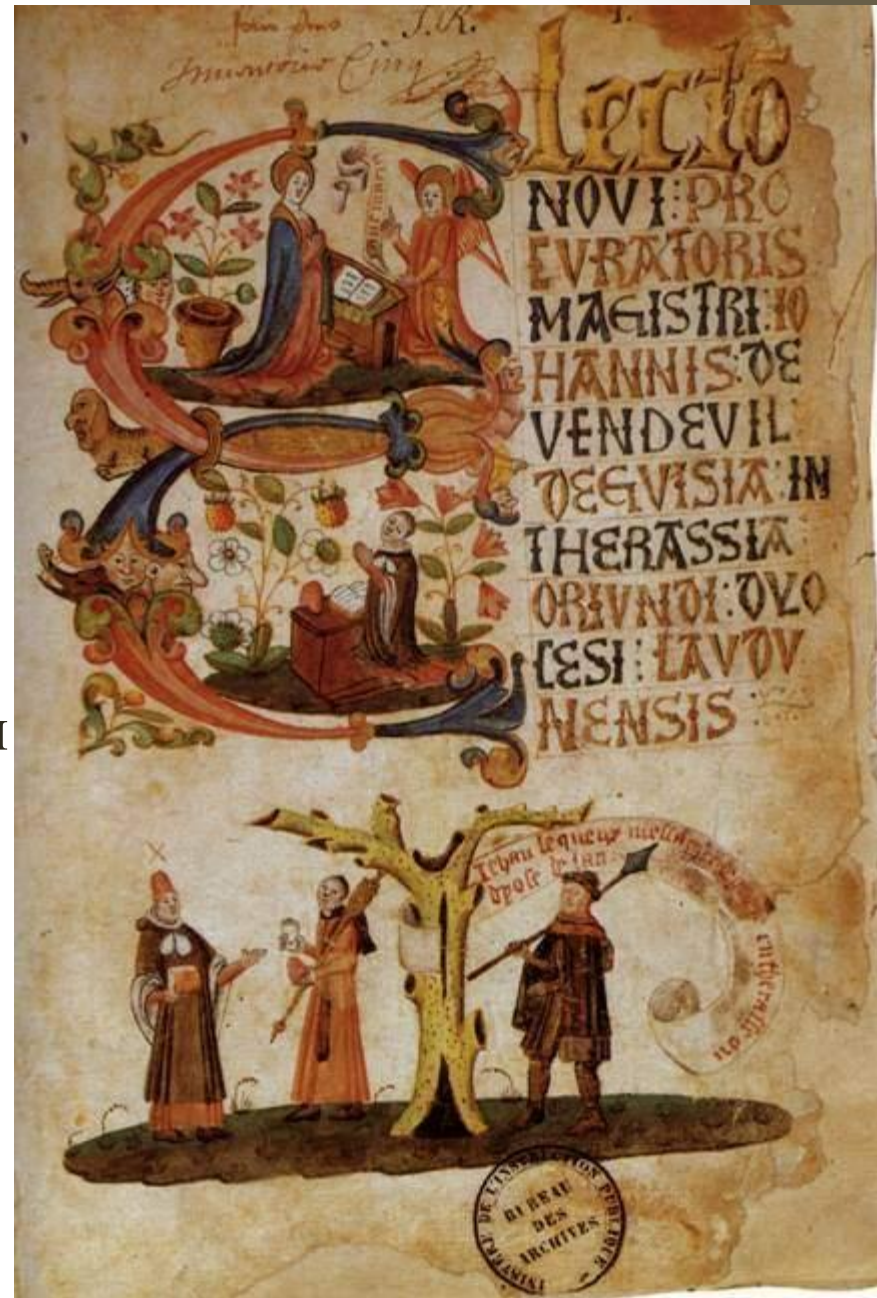 J. R.
Electō
NOVI : PRO
CVRATORIS
MAGISTRI : IO
HANNIS : DE
VENDEVIL
DEGVISIA : IN
THERASSIA
ORIVNDI : DYO
CESI : LAVDV
NENSIS
Jehan lequeux
MINISTÈRE DE L'INSTRUCTION PUBLIQUE
BUREAU
DES
ARCHIVES